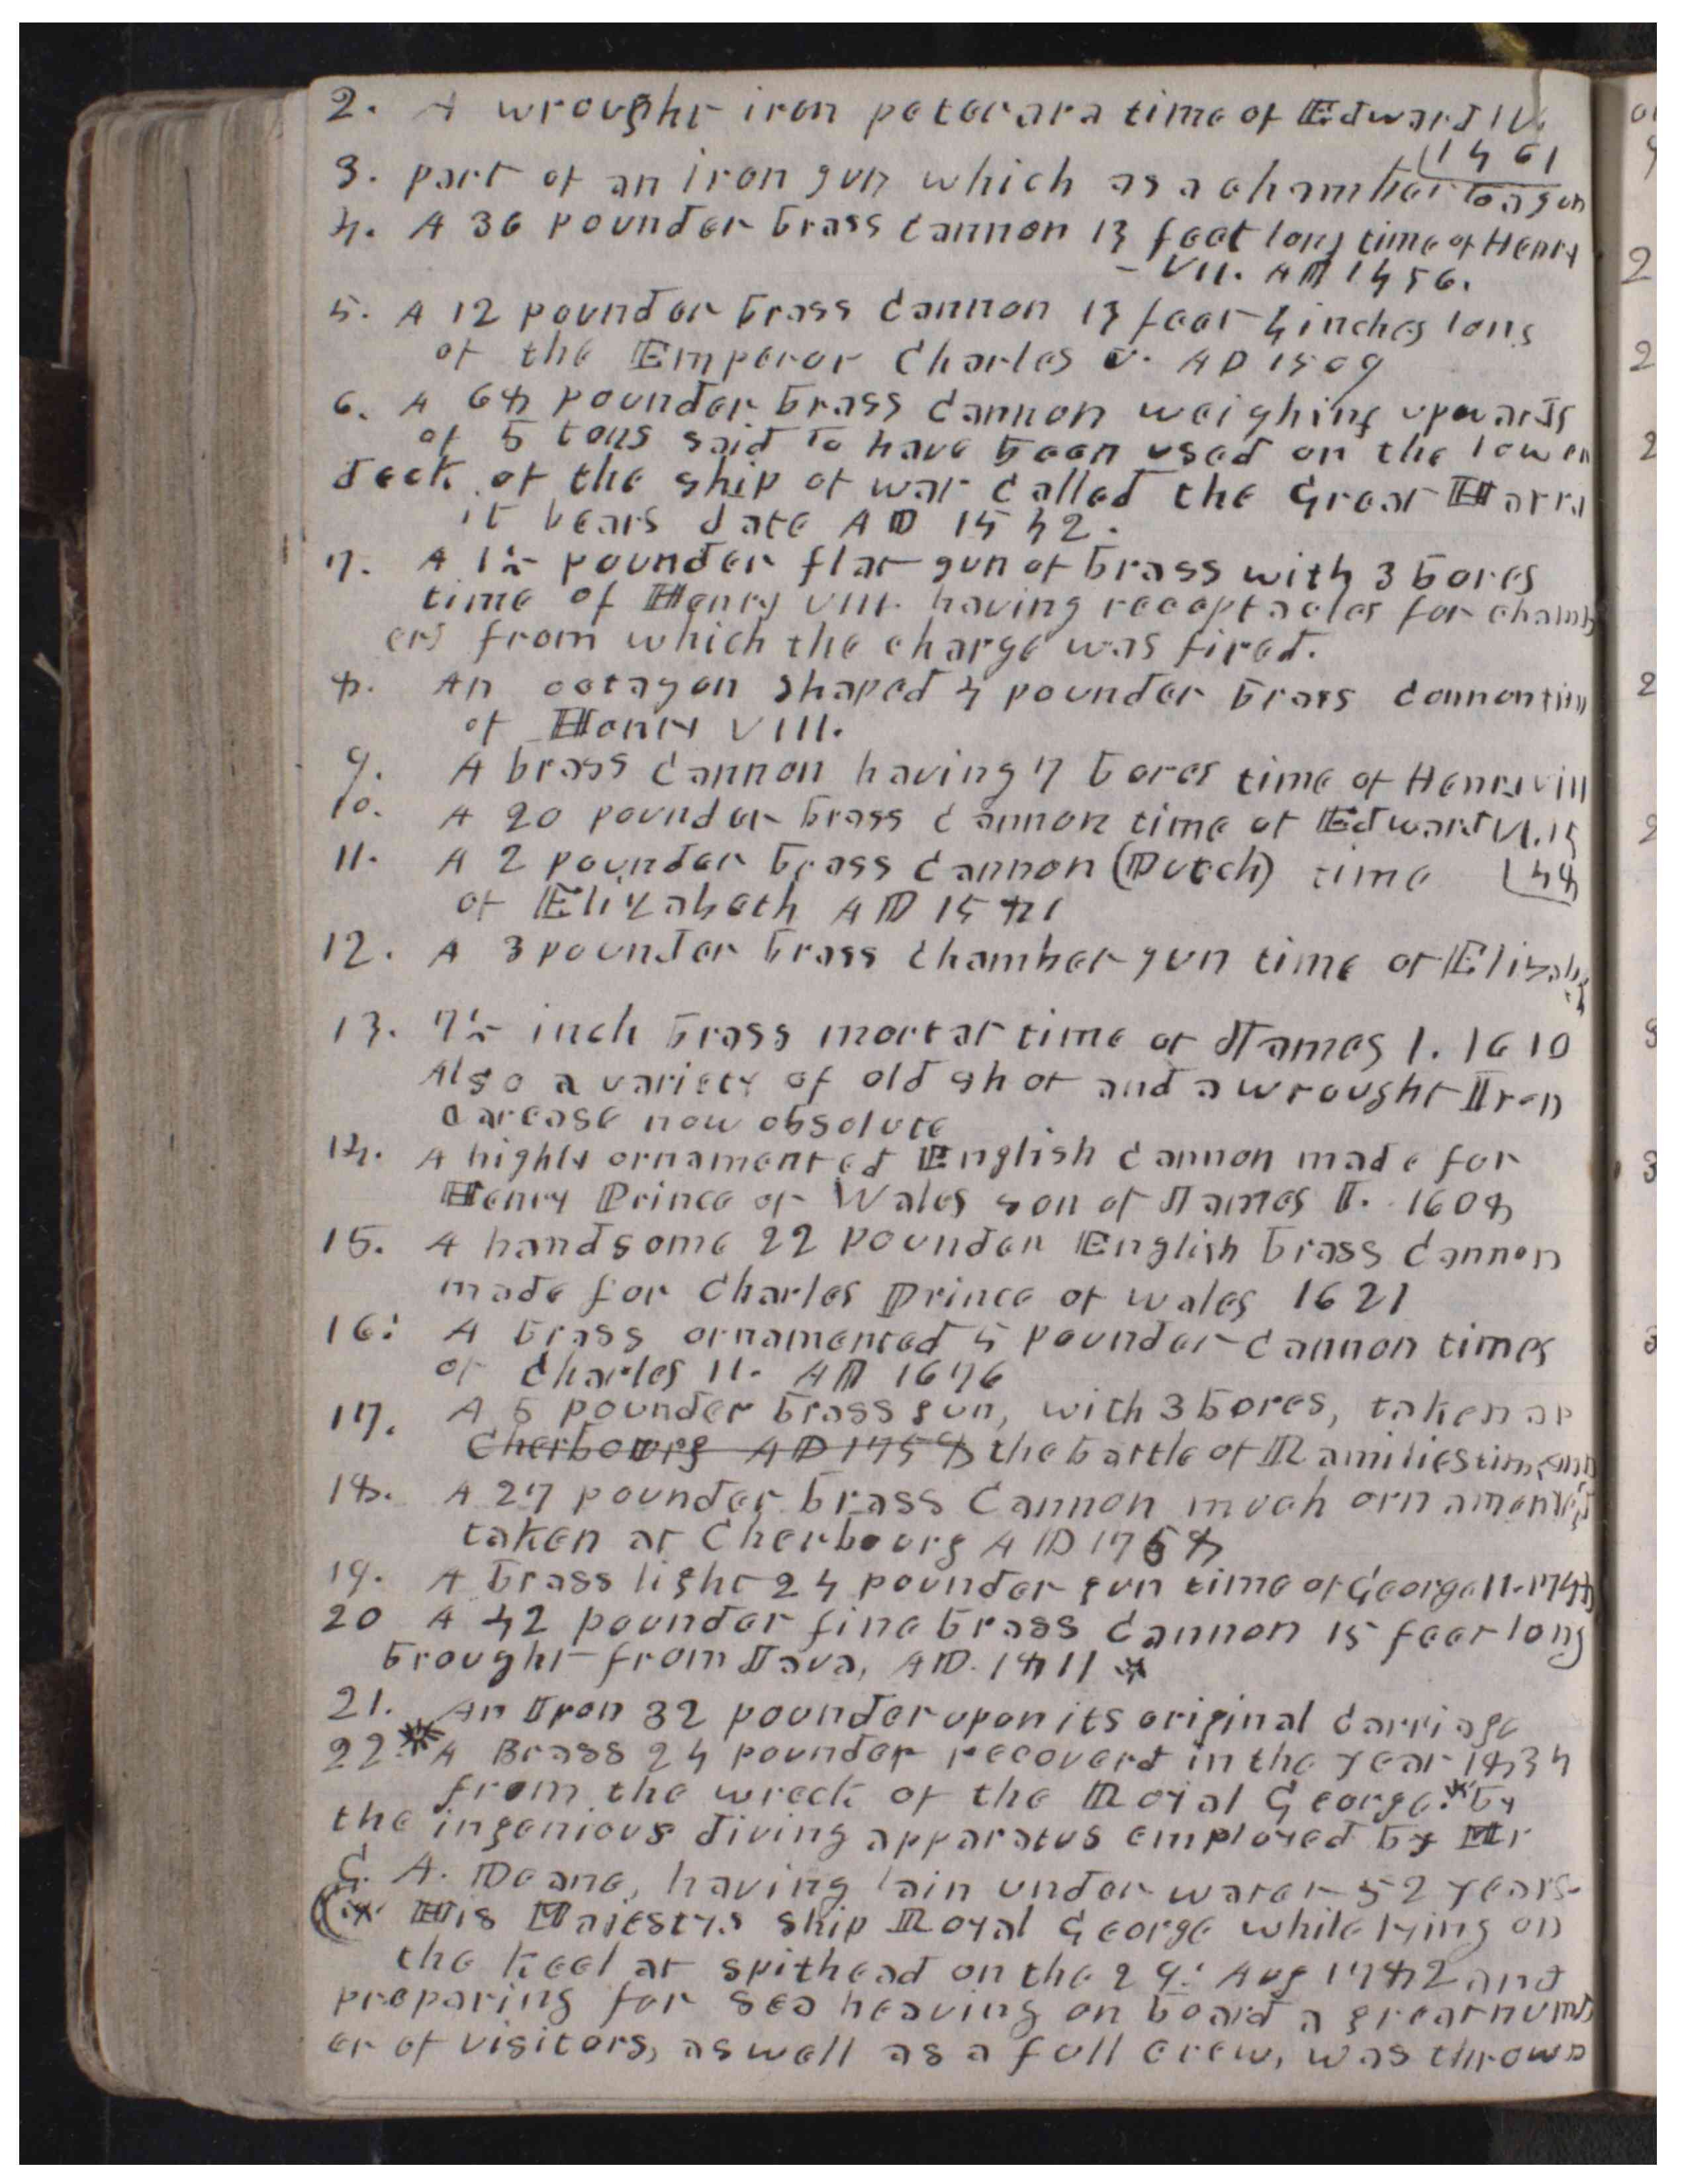 2. A wrought iron peterara time of Edward IV.
1461
3. part of an iron gun which as a chamber to a gun
4. A 36 pounder brass cannon 13 feet long time of Henry
- VII. AD 1456.
5. A 12 pounder brass cannon 13 feet 4 inches long
of the Emperor Charles V. AD 1509
6. A 68 pounder brass cannon weighing upwards
of 5 tons said to have been used on the lower
deck of the ship of war called the Great Harry
it bears date AD 1542.
7. A 1½ pounder flat gun of brass with 3 bores
time of Henry VIII. having receptacles for chamb
ers from which the charge was fired.
8. An octagon shaped 4 pounder brass cannon tim
of Henry VIII.
9. A brass cannon having 7 bores time of Henry VIII
10. A 20 pounder brass cannon time of Edward VI. 15
11. A 2 pounder brass cannon (Dutch) time 48
of Elizabeth AD 1581
12. A 3 pounder brass chamber gun time of Elizab
13. 7½ inch brass mortar time of James 1. 1610
Also a variety of old shot and a wrought Iron
carcase now obsolute
14. A highly ornamented English cannon made for
Henry Prince of Wales son of James I. 1608
15. A handsome 22 pounder English brass cannon
made for Charles Prince of wales 1621
16: A brass ornamented 5 pounder cannon times
of Charles II. AD 1676
17. A 5 pounder brass gun, with 3 bores, taken at
Cherbourg AD 1758 the battle of Ramilies time
18. A 27 pounder brass Cannon much ornamented
taken at Cherbourg AD 1758
19. A brass light 24 pounder gun time of George II. 1748
20 A 42 pounder fine brass cannon 15 feet long
brought from Java, AD. 1811 *
21. An Iron 32 pounder upon its original carriage
22. * A Brass 24 pounder recoverd in the year 1834
from the wreck of the Royal George. * by
the ingenious diving apparatus employed by Mr
C. A. Deane, having lain under water 52 years.
(* His Majestys ship Royal George while lying on
the keel at spithead on the 29: Aug 1782 and
preparing for sea heaving on board a great numb
er of visitors, as well as a full crew, was thrown